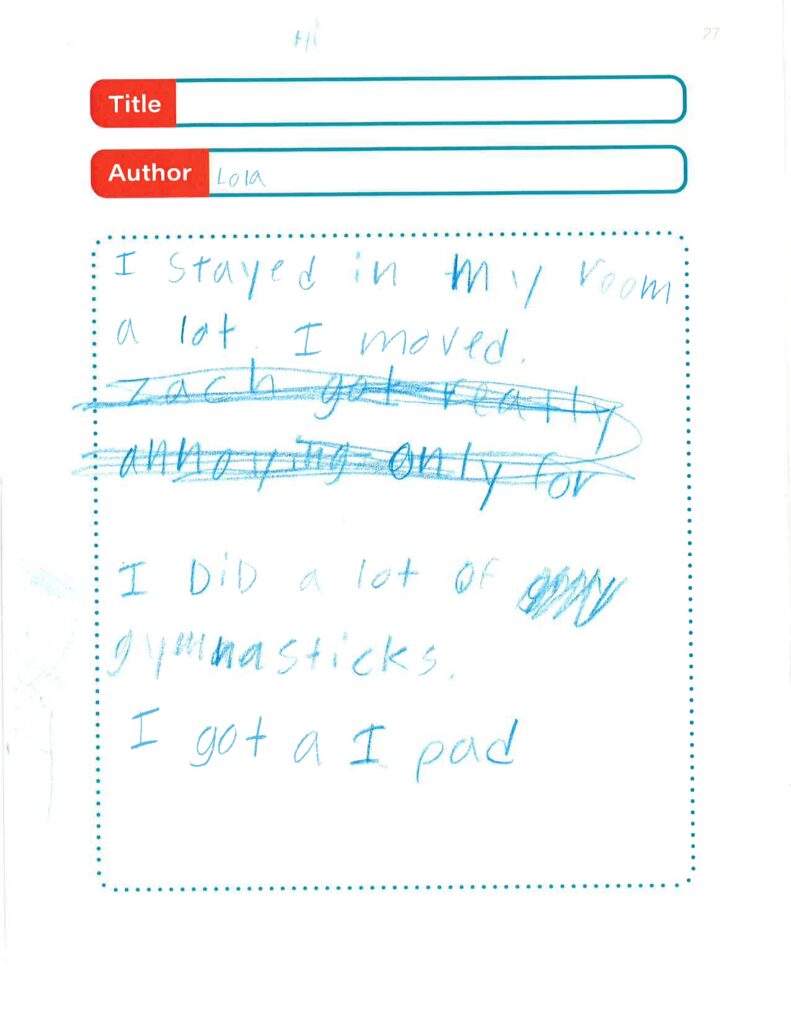 Hi
27
Title
Author Lola
I stayed in my room
a lot. I moved.
Zach got really
annoying only for
I DiD a lot of
gymnasticks.
I got a I pad